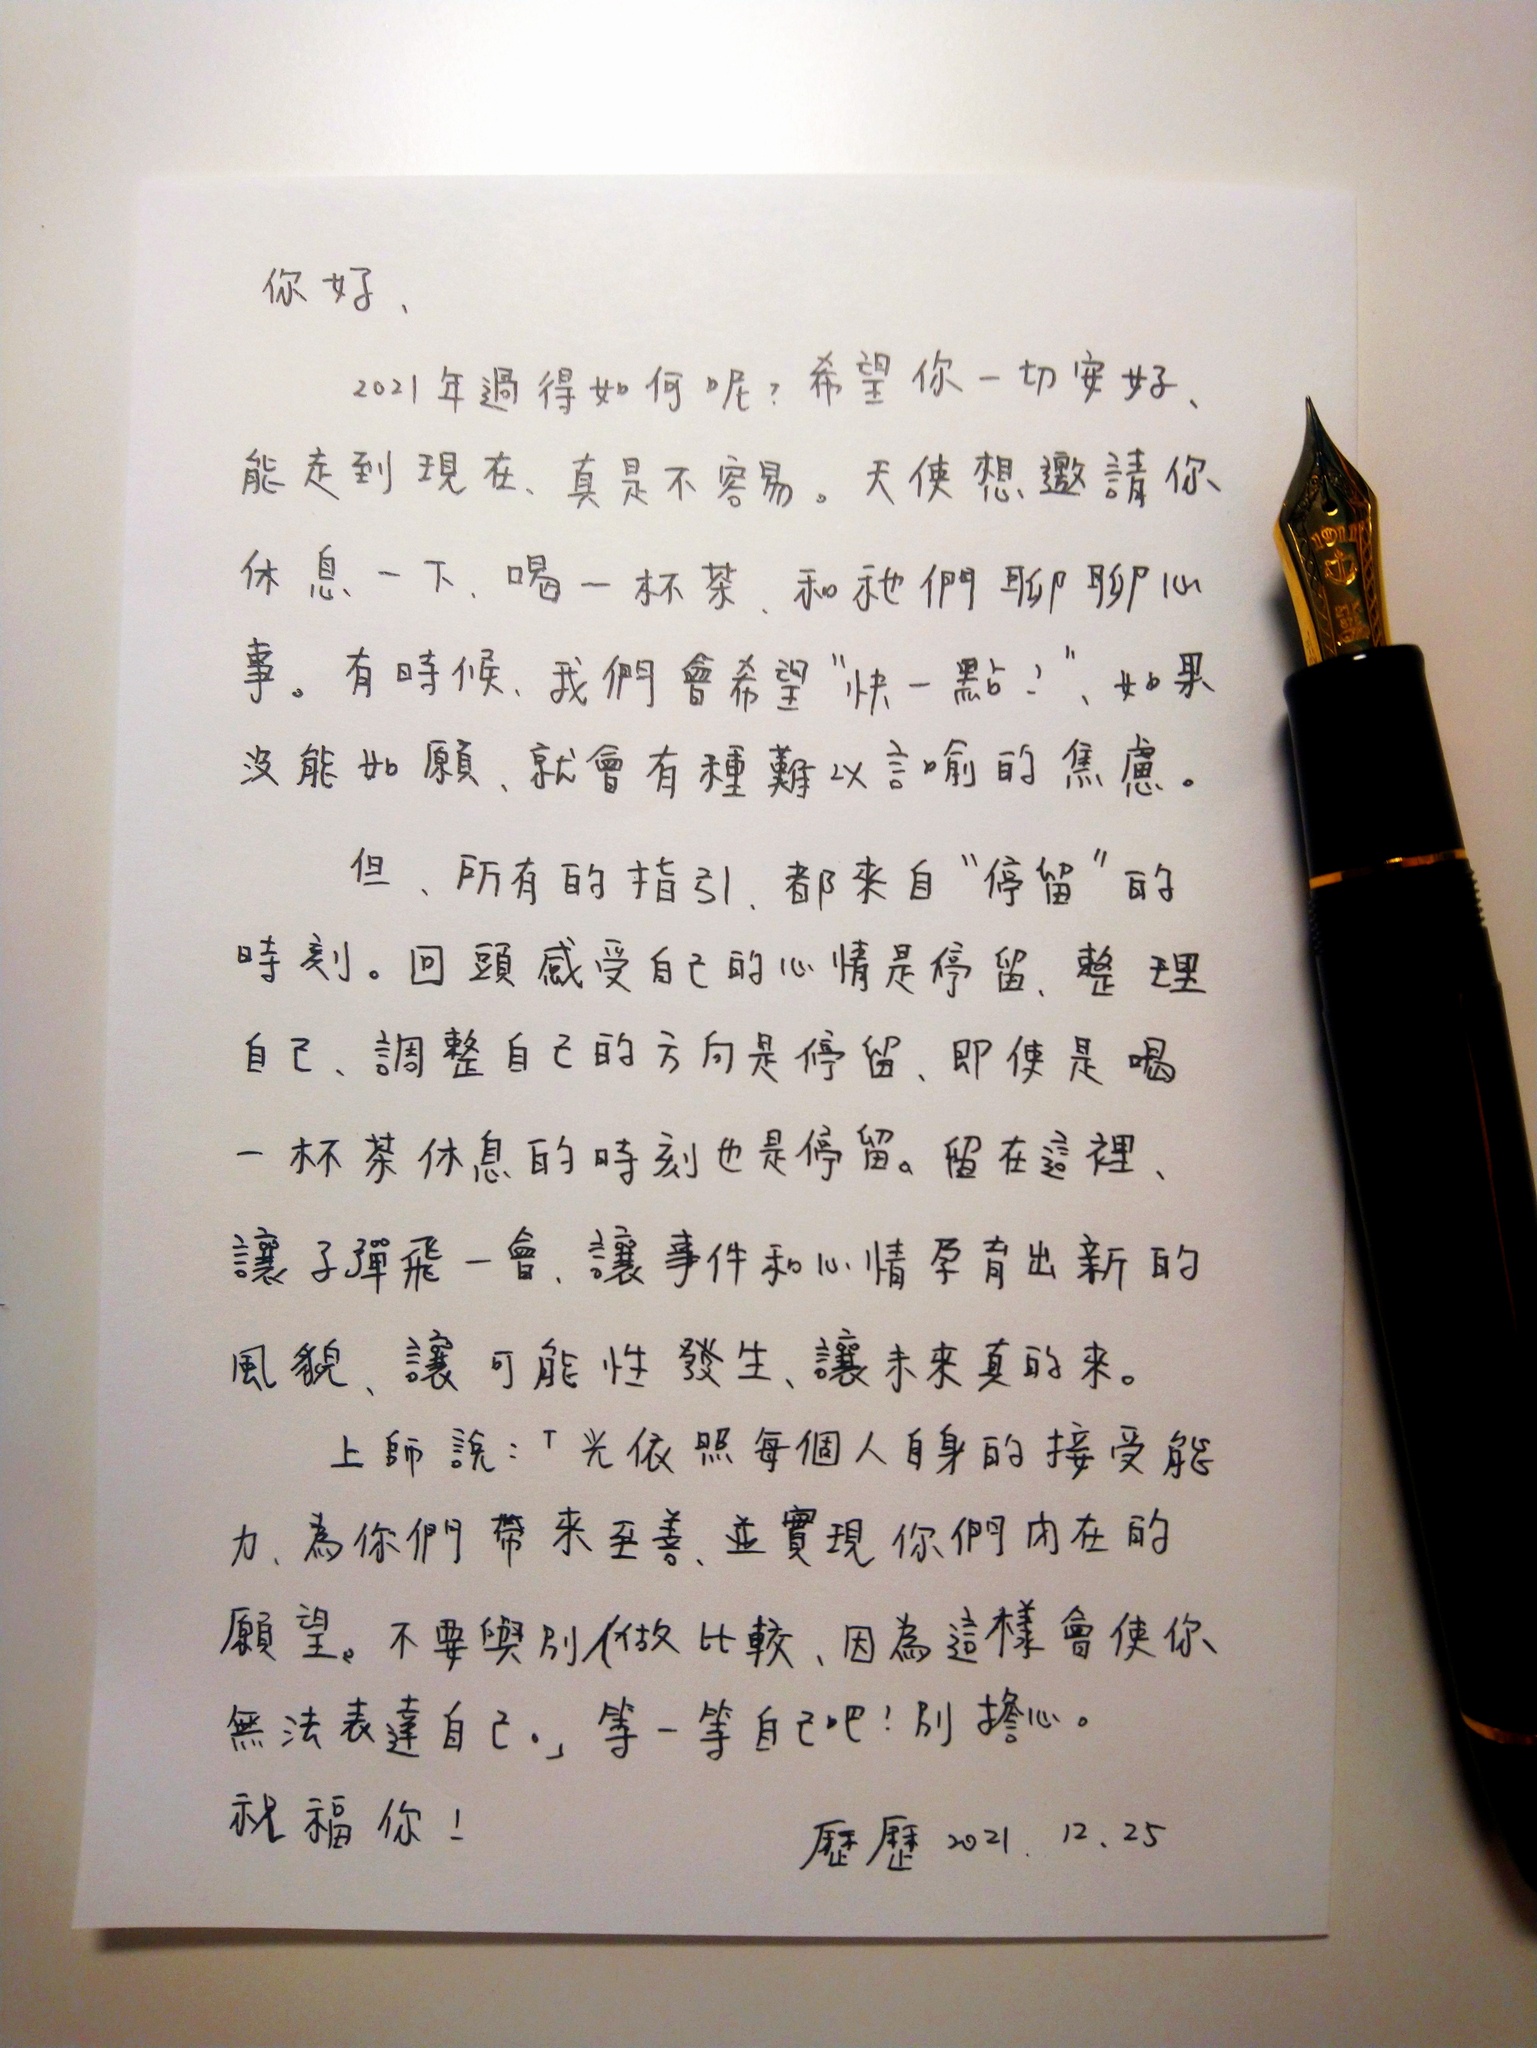 你好、
2021年過得如何呢？希望你一切安好、
能走到現在、真是不容易。天使想邀請你、
休息一下、喝一杯茶、和祂們聊聊心
事。有時候、我們會希望"快一點！"、如果
沒能如願、就會有種難以言喻的焦慮。
但、所有的指引、都來自"停留"的
時刻。回頭感受自己的心情是停留、整理
自己、調整自己的方向是停留、即使是喝
一杯茶休息的時刻也是停留。留在這裡、
讓子彈飛一會、讓事件和心情孕育出新的
風貌、讓可能性發生、讓未來真的來。
上師說：「光依照每個人自身的接受能
力、為你們帶來至善、並實現你們內在的
願望。不要與別人做比較、因為這樣會使你、
無法表達自己。」等一等自己吧！別擔心。
祝福你！
歷歷 2021. 12. 25
1911